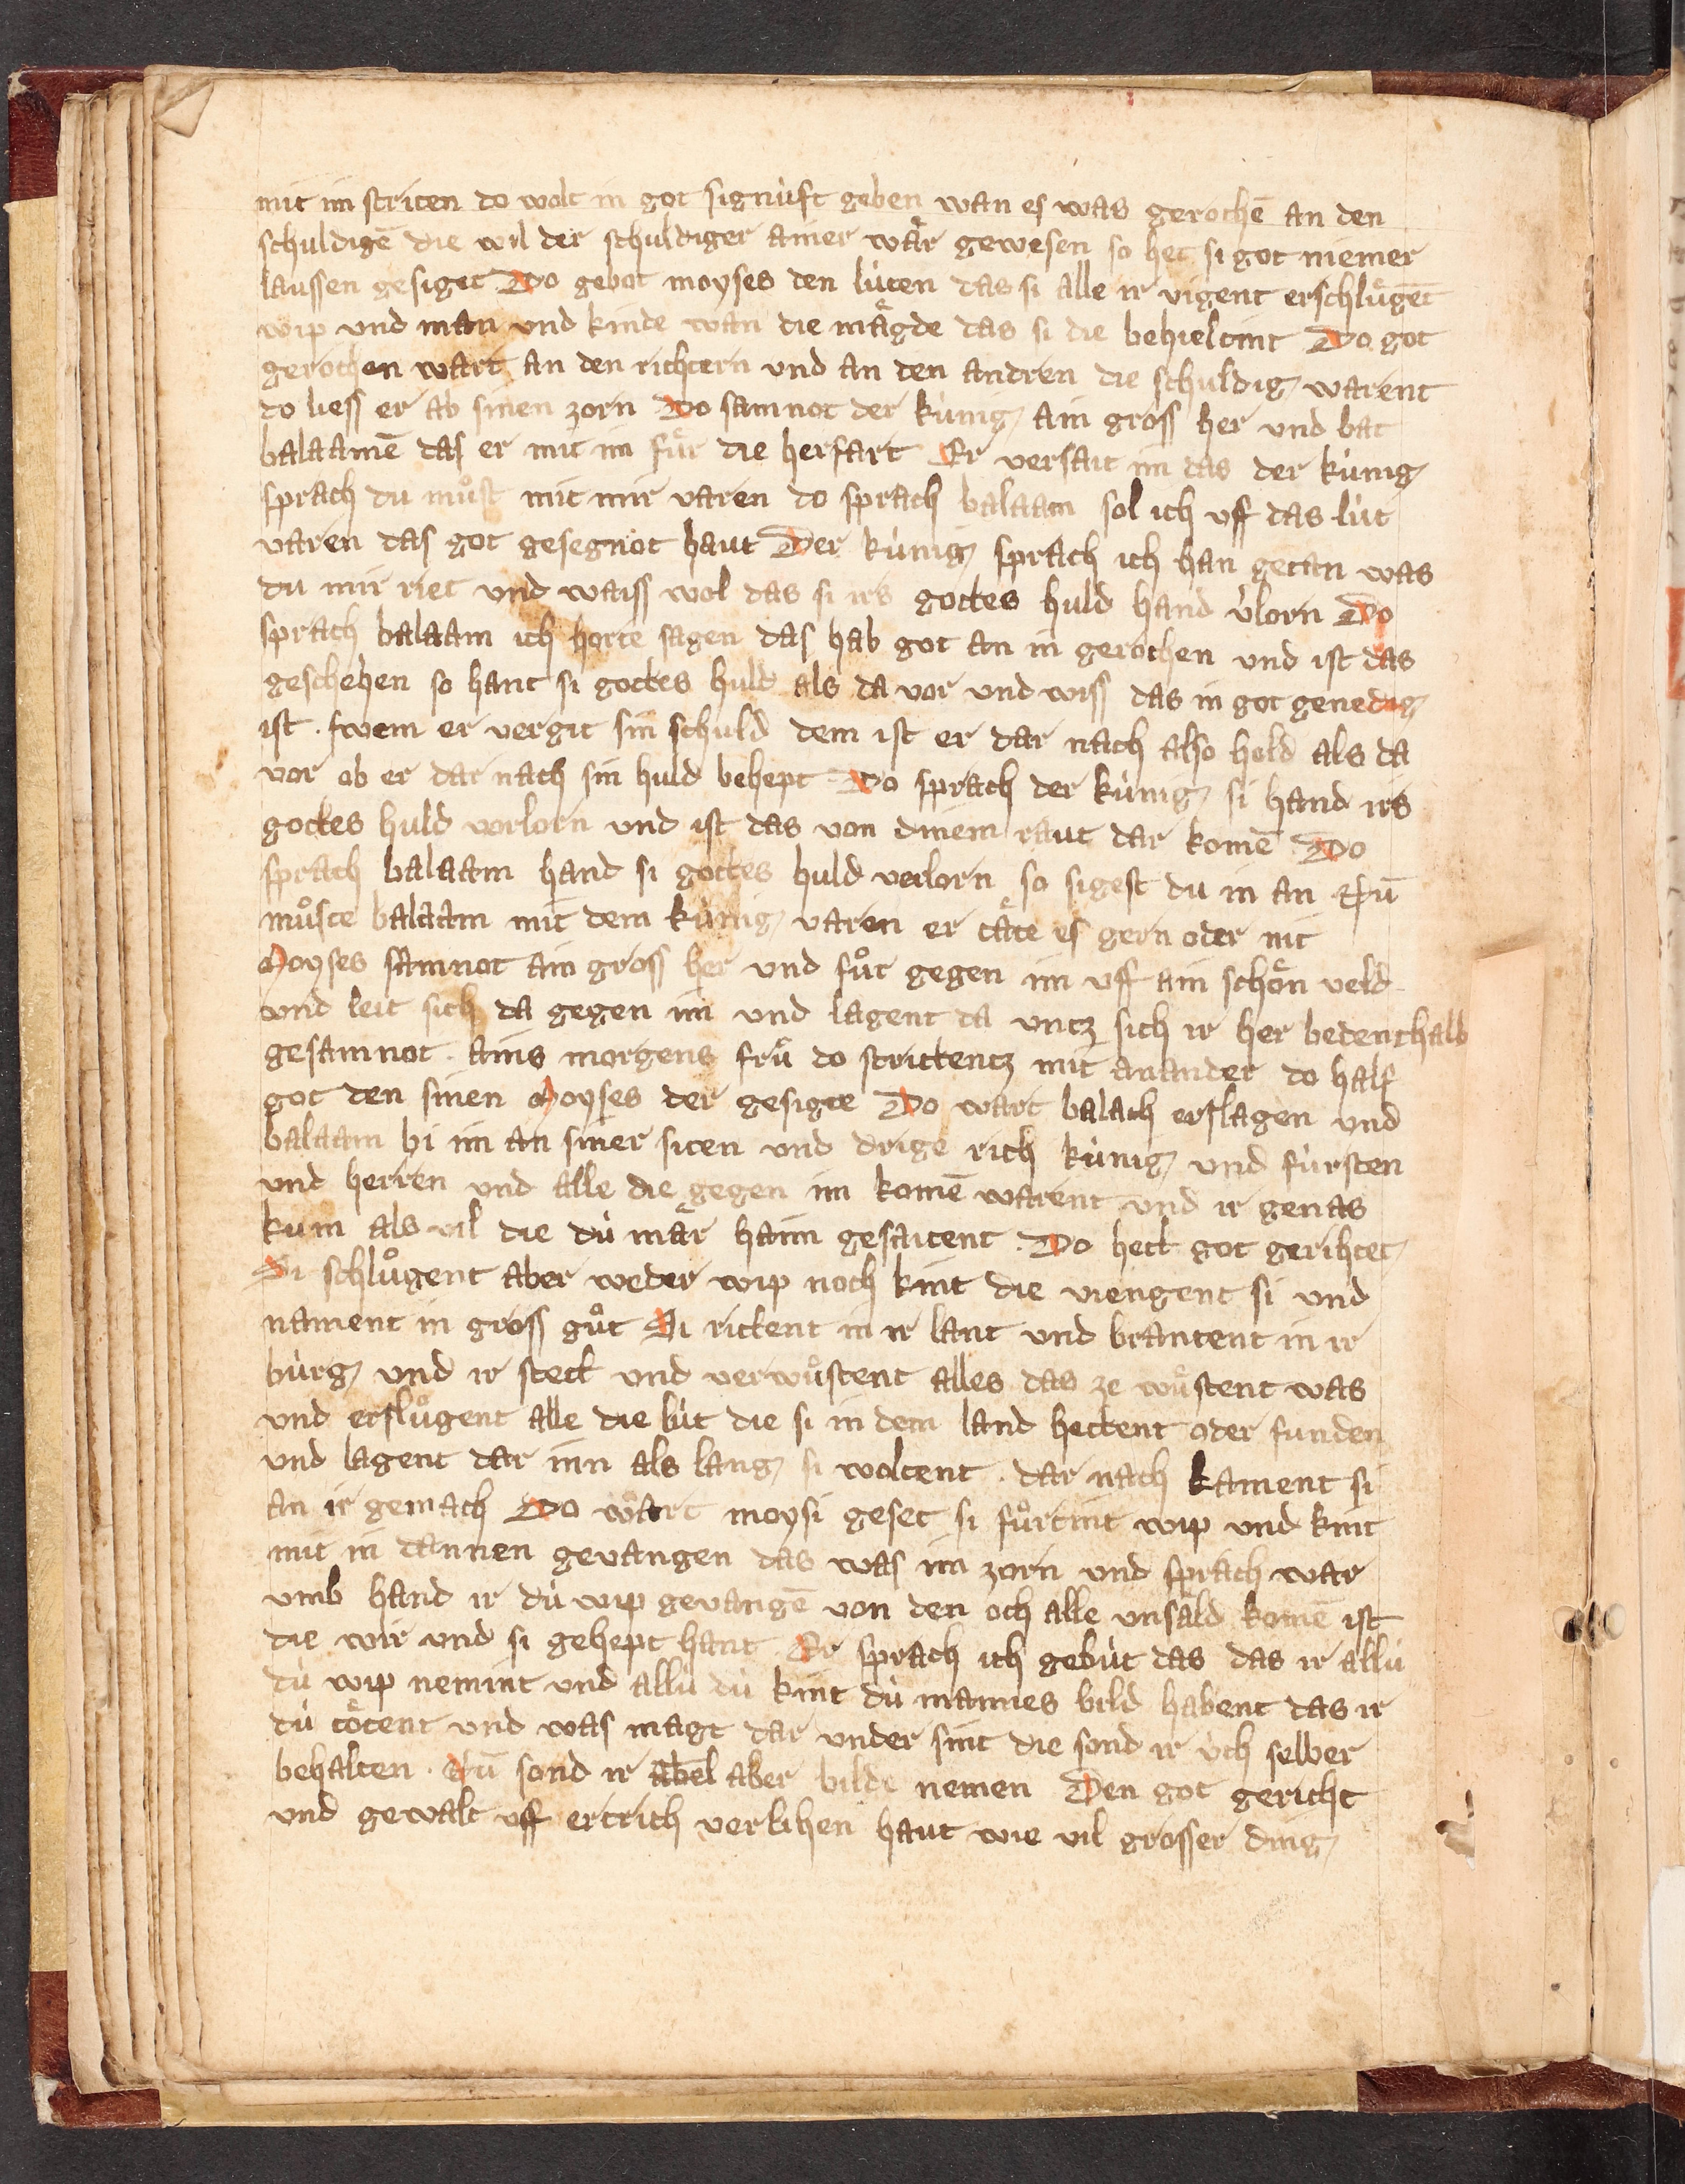 mit im striten do wolt in got signu̇ft geben wan es was gerochē an den
schuldigē die wil der schuldiger ainer wa᷑r gewesen so het si got niemer
laussen gesiget Do gebot moyses den lu̇ten das si alle ir vigent erschlu᷑gēt
wip und man und kinde wan die ma᷑gde das si die behieltint Do got
gerochen wart an den richtern und an den andren die schuldig warent
do liess er ab sinen zorn Do samnot der ku̇nig ain gross her und bat
balaamē das er mit im fu᷑r die herfart Er versait im das der ku̇nig
sprach du mu᷑st mit mir varen do sprach balaam sol ich uff das lu̇t
varen das got gesegnot haut Der ku̇nig sprach ich han getan was
du mir riet und waiss wol das si irs gottes huld hand v̇lorn Do
sprach balaam ich horte sagen das hab got an in gerochen und ist das
geschehen so hant si gottes huld als da vor und wiss das in got genedig
ist . swem er vergit sin schuld dem ist er dar nach also hold als da
vor ob er dar nach sin huld behept Do sprach der ku̇nig si hand irs
gottes huld vorlorn und ist das von dinem raut dar komē Do
sprach balaam hand si gottes huld verlorn so sigest du in an Nū
mu᷑ste balaam mit dem ku̇nig varen er ta᷑te es gern oder nit
Moyses samnot ain gross her und fůr gegen im uff ain scho᷑n veld
und leit sich da gegen im und lagent da untz sich ir her bedenthalb
gesamnot . ains morgens fru᷑ do strittentz mit ananander do half
got den sinen Moyses der gesigte Do wart balach erslagen und
balaam bi im an siner siten und drige rich ku̇nig und fu̇rsten
und herren und alle die gegen im komē warent und ir genas
kum als vil die du̇ ma᷑r haim gesaitent . Do hett got gerihtet
Si schlůgent aber weder wip noch kint die viengent si und
nament in gross gůt Si rittent in ir lant und brantent in ir
bu̇rg und ir stett und verwu᷑stent alles das ze wu᷑stent was
und erslůgent alle die lu̇t die si in dem land hettent oder funden
und lagent dar inn als lang si woltent . dar nach kament si
an ir gemach Do wart moysi geset si fůrtint wip und kint
mit in dannen gevangen das was im zorn und sprach war
umb hand ir du̇ wip gevangē von den och alle unsa᷑ld komē ist
die wir und si gehept hant . Er sprach ich gebu̇t das das ir allu̇
du̇ wip nemint und allu̇ du̇ kint du̇ mannes bild habent das ir
du̇ to᷑tent und was magt dar under sint die sond ir u̇ch selber
behalten . Nū sond ir abel aber bilde nemen Den got gericht
und gewalt uff ertrich verlihen haut wie vil grosser ding